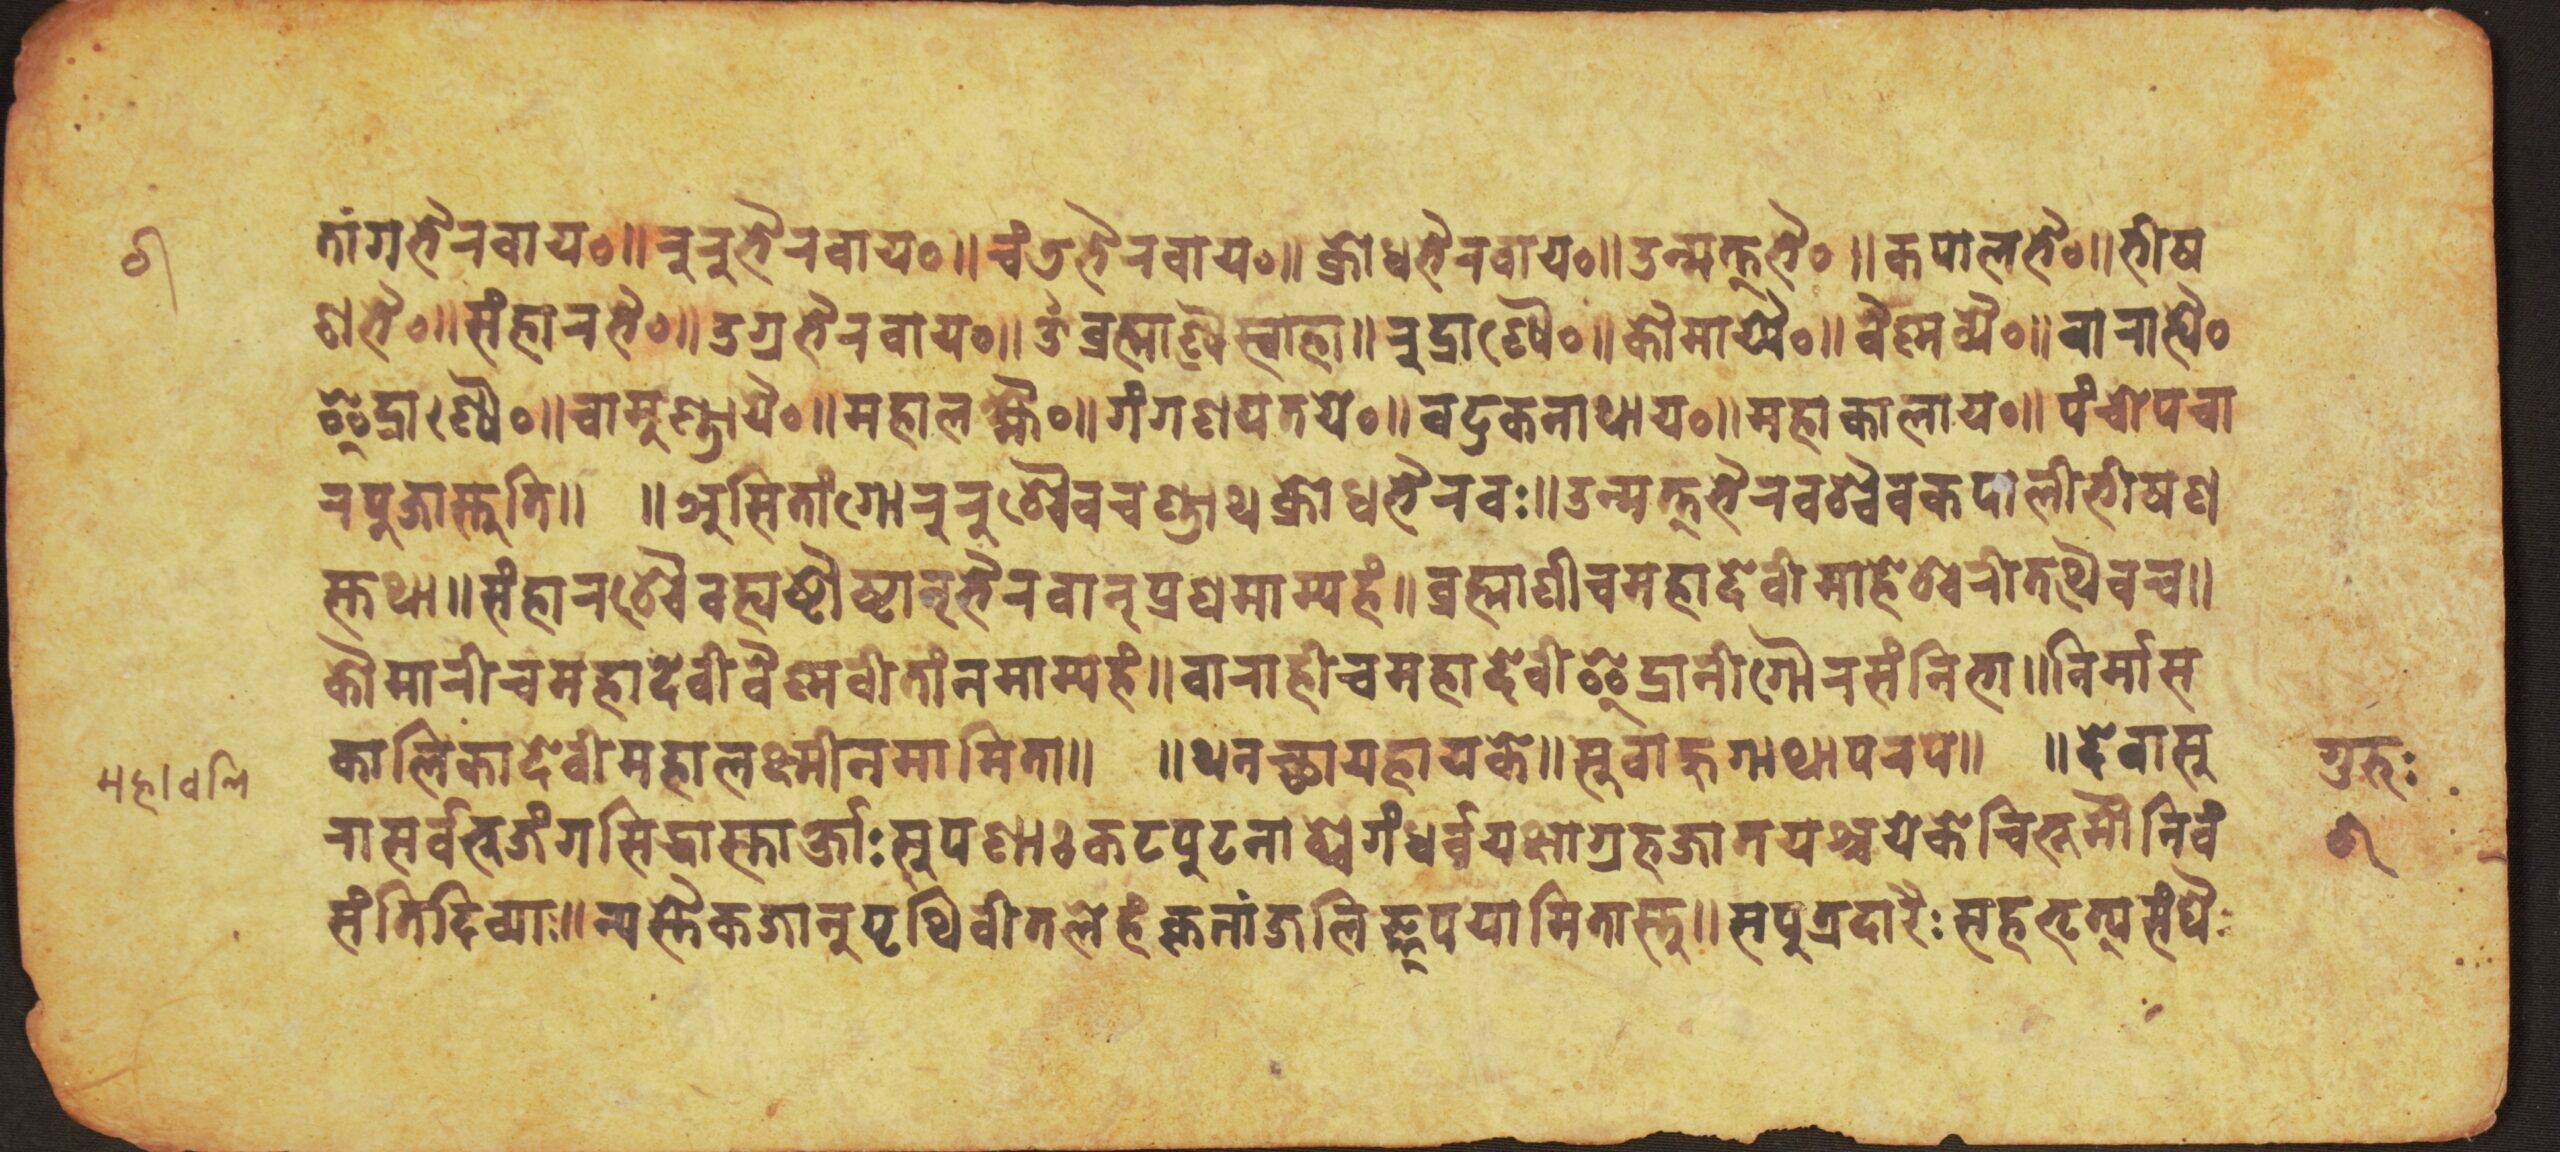 तांगभैरवाय०॥ रुरुभैरवाय०॥ चंडभैरवाय०॥ क्रोधभैरवाय०॥ उन्मत्तभै०॥ कपालभै०॥ भीष
णभै०॥ संहारभै०॥ उग्रभैरवाय०॥ ॐ ब्रह्माण्यैस्वाहा॥ रुद्राण्यै०॥ कौमार्य्यै०॥ वैष्णव्यै०॥ वाराह्यै०
ऐंद्राण्यै०॥ चामुण्डायै०॥ महालक्ष्मै०॥ गंगणपतये०॥ वटुकनाथाय०॥ महाकालाय०॥ पंचोपचा
रपुजास्तुति॥ ॥ असितांगोरुरुश्चैवचण्डाथक्रोधभैरवः॥ उन्मत्तभैरवश्चैवकपालीभीषण
स्तथा॥ संहारश्चैवह्यष्टौष्टान्भैरवान्प्रणमाम्यहं॥ ब्रह्माणीचमहादेवीमाहेश्वरीतथैवच॥
कौमारीचमहादेवीवैष्णवीतांनमाम्यहं॥ वाराहीचमहादेवीऐंद्रानीगौरसंनिभा॥ निर्मास
कालिकादेवीमहालक्ष्मीनमामिता॥ ॥ थनच्छायहायके॥ सुवाहुगाथापरपे॥ ॥ देवासु
रासर्वभुजंगसिद्धास्तार्क्षाः सुपर्णाः कटपुटनाश्च गंधर्वयक्षाग्रहजातयश्चयेकेचिभूमौनिवं
संतिदिव्याः॥ न्यस्तैकजानुपृथिवीतलेहंकृतांजलि पयामितास्तु॥ सपुत्रदारैः सहभृत्यसंघै
महावलि
गुरुः